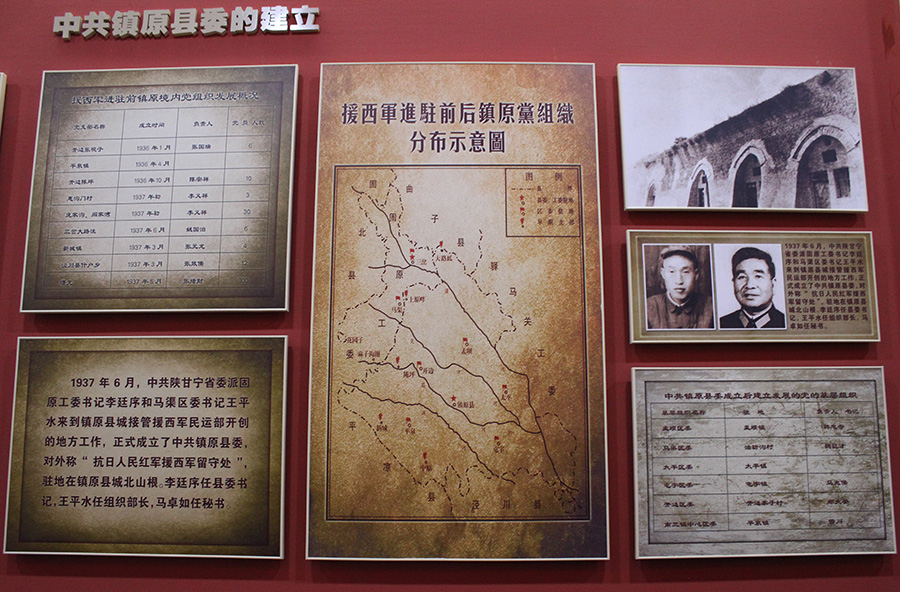 中共镇原县委的建立
援西军进驻前镇原境内党组织发展概况
党支部名称 成立时间 负责人 党员人数
开边张坝子 1936年1月 张国瑞 6
平泉镇 1936年4月
开边陈坪 1936年10月 陈宗祥 10
1937年初 李义祥 3
1937年初 李义祥 30
三岔大路洼 1937年6月 姚国治 6
新城镇 1937年3月 4
1937年3月
1937年6月
1937年6月,中共陕甘宁省委派固
原工委书记李廷序和马渠区委书记王平
水来到镇原县城接管援西军民运部开创
的地方工作,正式成立了中共镇原县委,
对外称“抗日人民红军援西军留守处”,
驻地在镇原县城北山根。李廷序任县委书
记,王平水任组织部长,马卓如任秘书
援西軍進駐前后鎮原黨組織
分布示意圖
图例
县界
县委、工委驻地
区委驻地
早期支部
固
曲
固
子
北
县
驿
县
原
马
工
关
委
工
委
平
凉
县
泾川县
三岔
大路洼
上原畔
马渠
庄园子
陈坪
开边
孟坝
镇原县
新城
平泉
1937年6月,中共陕甘宁
省委派固原工委书记李廷
序和马渠区委书记王平水
来到镇原县城接管援西军
民运部开创的地方工作,正
式成立了中共镇原县委,对
外称“抗日人民红军援西
军留守处”,驻地在镇原县
城北山根。李廷序任县委书
记,王平水任组织部长,马
卓如任秘书。
中共镇原县委成立后建立发展的党的基层组织
基层组织名称 驻地 负责人 书记
孟坝区委 孟坝镇
马渠区委
太平区委 太平镇
屯字区委 屯字镇
开边区委
南三镇中心区委 平泉镇